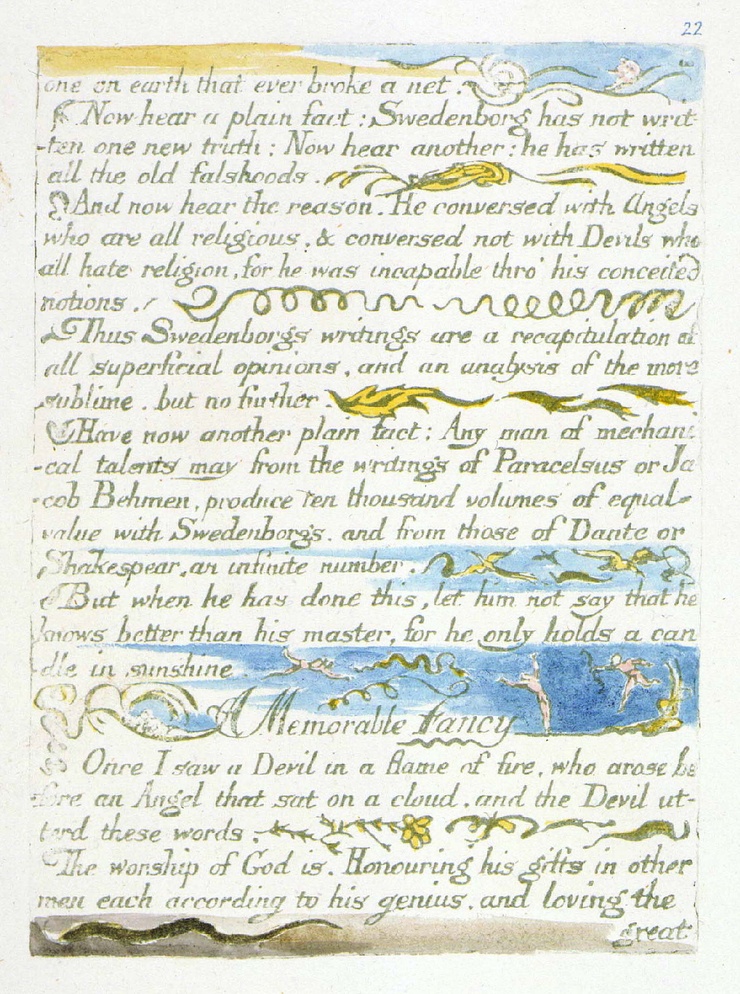 22
one on earth that ever broke a net.
Now hear a plain fact: Swedenborg has not writ-
-ten one new truth: Now hear another: he has written
all the old falshoods.
And now hear the reason. He conversed with Angels
who are all religious, & conversed not with Devils who
all hate religion, for he was incapable thro' his conceited
notions.
Thus Swedenborgs writings are a recapitulation of
all superficial opinions, and an analysis of the more
sublime. but no further.
Have now another plain fact: Any man of mechani
-cal talents may from the writings of Paracelsus or Ja
-cob Behmen, produce ten thousand volumes of equal
value with Swedenborg's. and from those of Dante or
Shakespear, an infinite number.
But when he has done this, let him not say that he
knows better than his master, for he only holds a can
-dle in sunshine.
A Memorable Fancy
Once I saw a Devil in a flame of fire, who arose be
-fore an Angel that sat on a cloud, and the Devil ut-
-terd these words.
The worship of God is. Honouring his gifts in other
men each according to his genius. and loving the
great